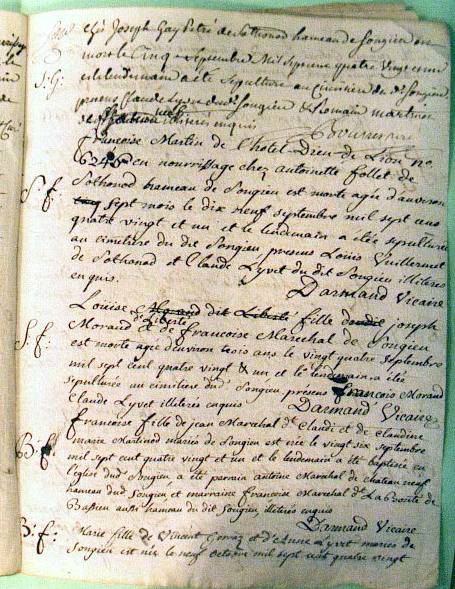 chés Joseph Gay Petré de Sothonod hameau de Songieu est
mort le Cinq Septembre Mil Sept cent quatre vingt un
et le lendemain a été sepulturé au Cimetière dud. Songieu
S: G:
presens Claude Lyvet dud. Songieu & Romain martinod
de illiterés enquis
Francoise Martin de l'hotel Dieu de Lion no
6245 en nourrissage chez antoinette follet de
S. f:
Sothonod hameau de Songieu est morte agée d'environ
sept mois le dix neuf septembre mil sept cent
quatre vingt et un et le lendemain a étée sepulturée
au cimetiere du dit Songieu presens Louis Vuillermet
de Sothonod et Claude Lyvet du dit Songieu illiteres
enquis.
Darmand Vicaire
Louise Morand dit Liberte fille de joseph
Morand dit liberte & de Francoise Marechal de Songieu
S. f:
est morte agée d'environ trois ans le vingt quatre septembre
mil sept cent quatre vingt & un et le lendemain a étée
sepulturée au cimetiere dud Songieu presens francois Morand
Claude Lyvet illiterés enquis
Darmand Vicaire
francoise fille de jean Marechal de Claudi et de Claudine
marie Martinod mariés de Songieu est née le vingt six septembre
B: f:
mil sept cent quatre vingt et un et le lendemain a été baptisée en
l'église dud Songieu, a été parrain antoine Marechal de chateau neuf
hameau dud Songieu et marraine francoise Marechal de
Bassieu aussi hameau du dit Songieu illiterés enquis
Darmand Vicaire
B: f:
Marie fille de Vincent et d'Anne Lyvet mariés de
Songieu est née le neuf octobre mil sept cent quatre vingt